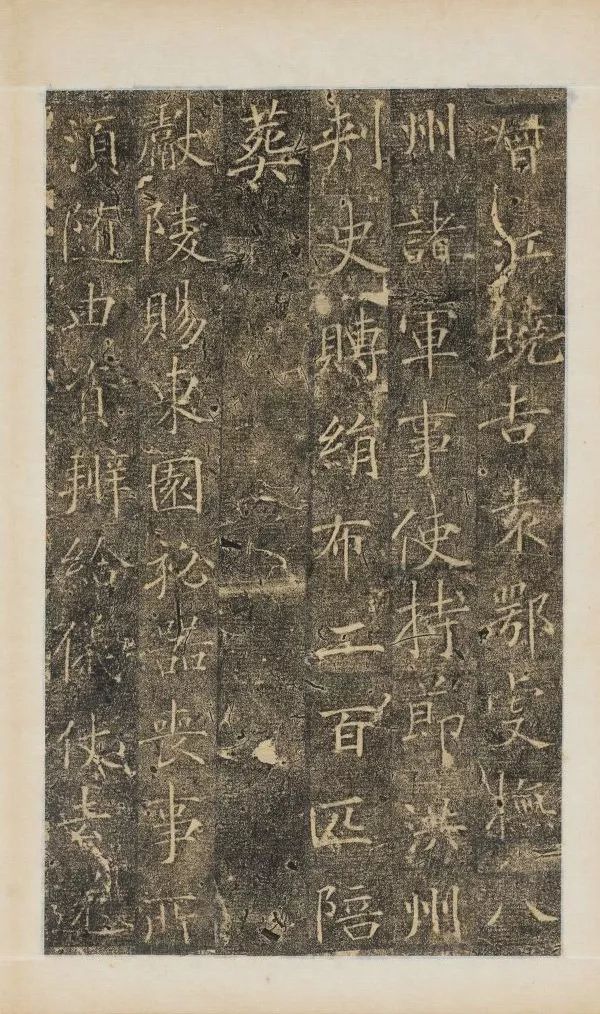 督江饒吉袁鄂虔撫八
州諸軍事使持節洪州
刺史賻絹布二百匹陪
葬
獻陵賜東園秘器喪事所
須隨由資辦給儀使